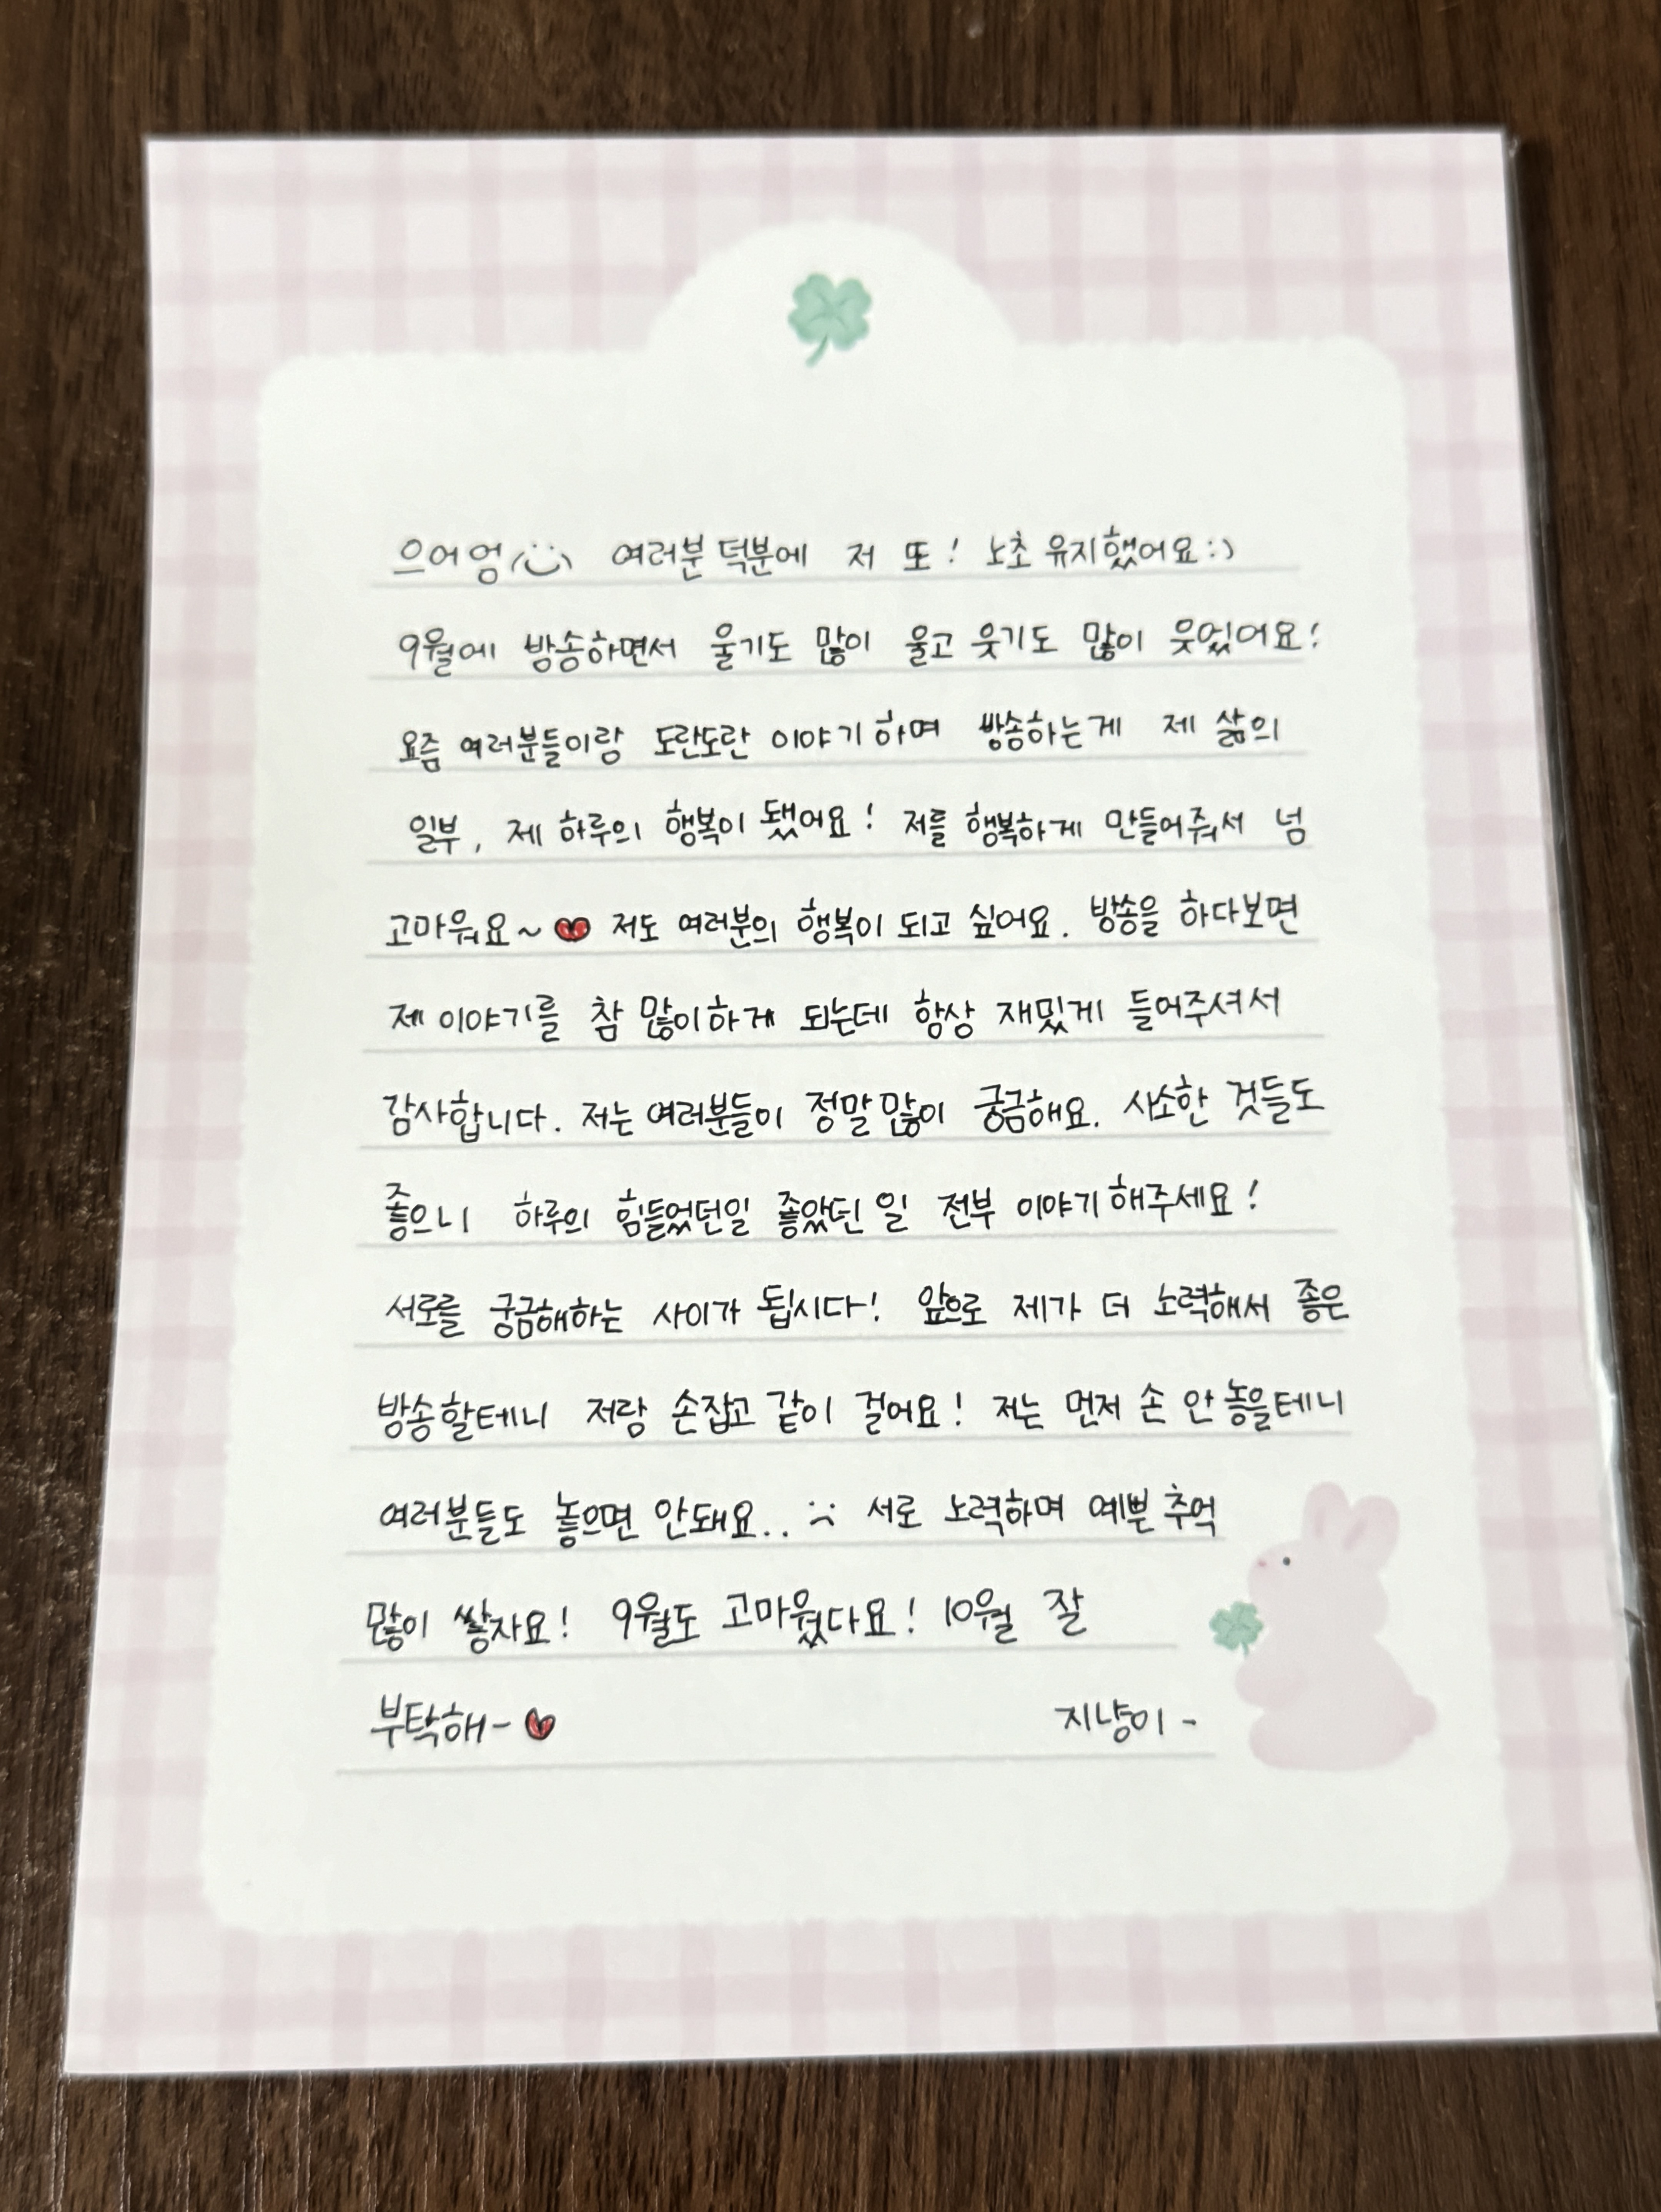 으어엄 여러분 덕분에 저 또! 노초 유지했어요:)
9월에 방송하면서 울기도 많이 울고 웃기도 많이 웃었어요!
요즘 여러분들이랑 도란도란 이야기하며 방송하는게 제 삶의
일부, 제 하루의 행복이 됐어요! 저를 행복하게 만들어줘서 넘
고마워요~ ❤ 저도 여러분의 행복이 되고 싶어요. 방송을 하다보면
제 이야기를 참 많이하게 되는데 항상 재밌게 들어주셔서
감사합니다. 저는 여러분들이 정말 많이 궁금해요. 사소한 것들도
좋으니 하루의 힘들었던일 좋았던 일 전부 이야기 해주세요!
서로를 궁금해하는 사이가 됩시다! 앞으로 제가 더 노력해서 좋은
방송할테니 저랑 손잡고 같이 걸어요! 저는 먼저 손 안 놓을테니
여러분들도 놓으면 안돼요.. :( 서로 노력하며 예쁜 추억
많이 쌓자요! 9월도 고마웠다요! 10월 잘
부탁해- ❤ 지냥이 -